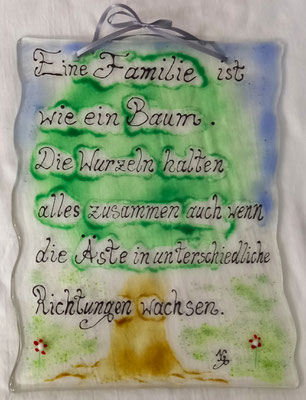 Eine Familie ist
wie ein Baum.
Die Wurzeln halten
alles zusammen auch wenn
die Äste in unterschiedliche
Richtungen wachsen.